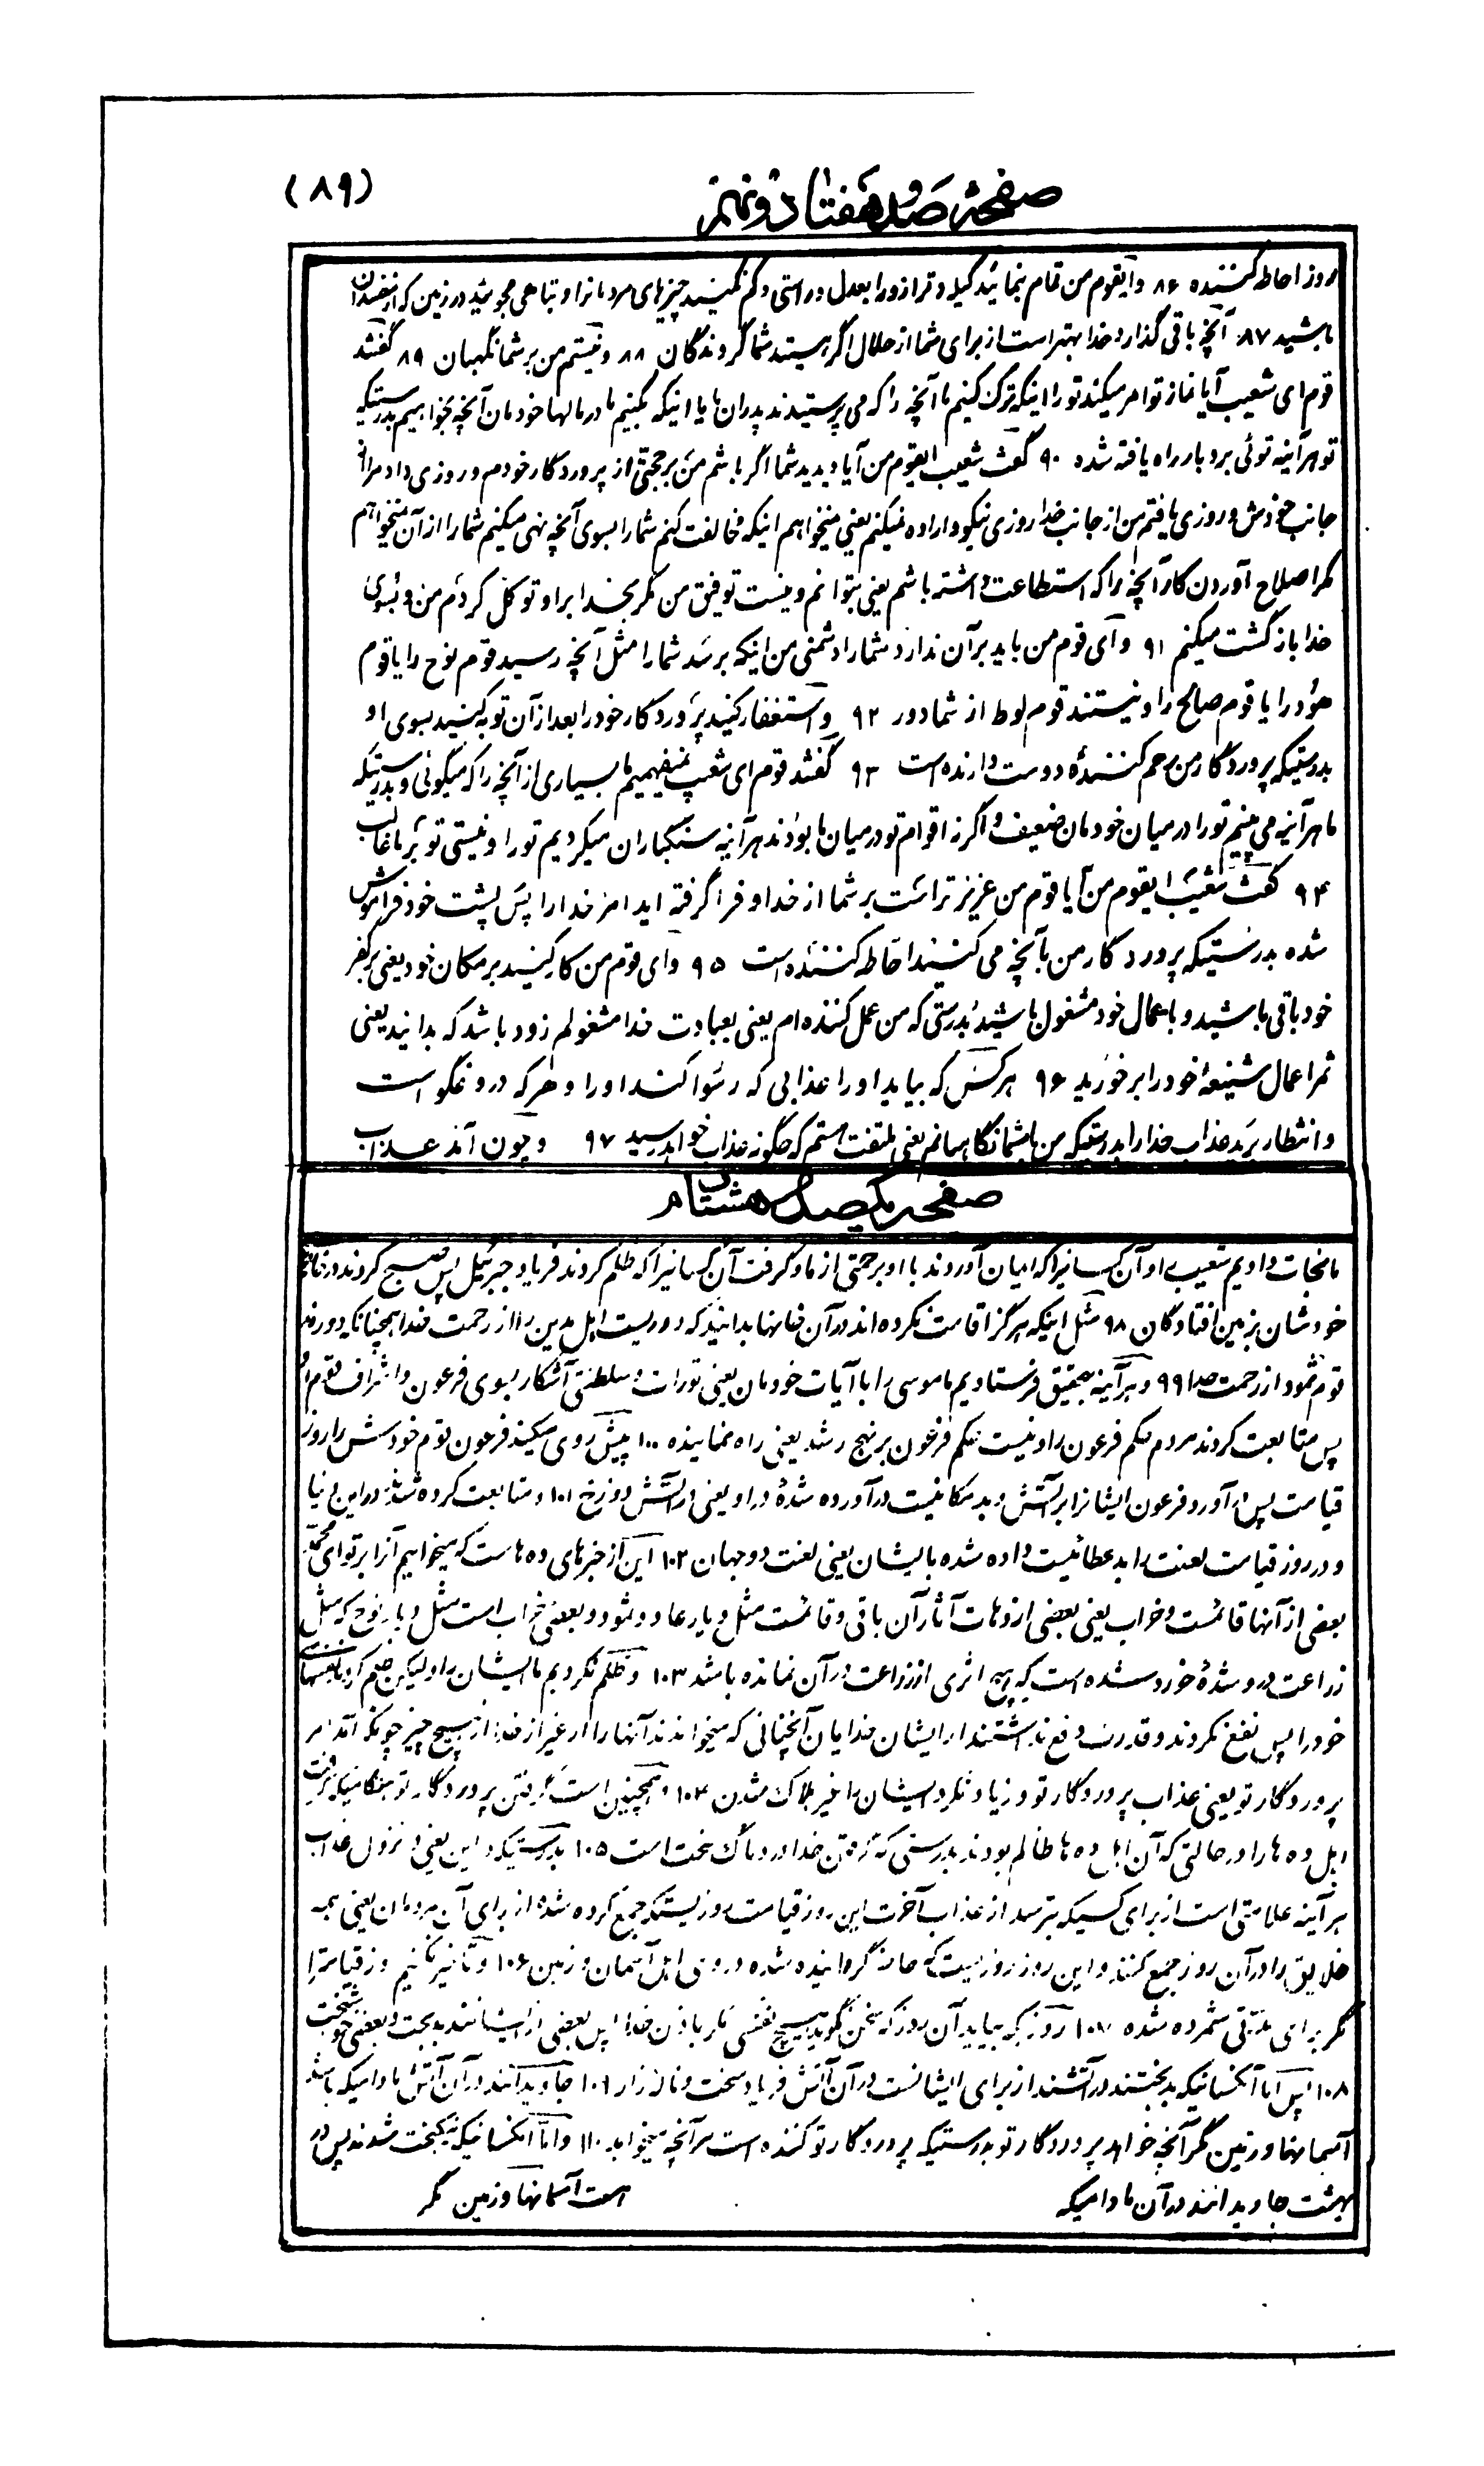 (۸۹)
صفحه صد و هفتاد و نهم
روز احاطه کننده ۸۶ و ایقوم من تمام بنمائید کیله و ترازو را بعدل و راستی و کم نکنید چیزهای مردمانرا و تباهی مجوئید در زمین که از مفسدان
باشید ۸۷ آنچه باقی گذارد خدا بهتر است از برای شما از حلال اگر هستید شما گروندگان ۸۸ و نیستم من بر شما نگهبان ۸۹ گفتند
قوم ای شعیب آیا نماز تو امر میکند تو را اینکه ترک کنیم ما آنچه را که می پرستیدند پدران ما یا اینکه بکنیم ما در مالها خودمان آنچه بخواهیم بدرستیکه
تو هر آینه توئی بردبار راه یافته شده ۹۰ گفت شعیب ایقوم من آیا دیدید شما اگر باشم من بر حجتی از پروردگار خودم و روزی داد مرا از
جانب خودش و روزی یافتم من از جانب خدا روزی نیکو و اراده نمیکنم یعنی نمیخواهم اینکه مخالفت کنم شما را بسوی آنچه نهی میکنم شما را از آن نمیخواهم
مگر اصلاح آوردن کار آنچه را که استطاعت داشته باشم یعنی بتوانم و نیست توفیق من مگر بخدا بر او توکل کردم من و بسوی
خدا بازگشت میکنم ۹۱ و ای قوم من باید بر آن ندارد شما را دشمنی من اینکه برسد شما را مثل آنچه رسید قوم نوح را یا قوم
هود را یا قوم صالح را و نیستند قوم لوط از شما دور ۹۲ و استغفار کنید پروردگار خود را بعد از آن توبه کنید بسوی او
بدرستیکه پروردگار من رحم کنندهٔ دوست دارنده است ۹۳ گفتند قوم ای شعیب نمیفهمیم ما بسیاری از آنچه را که میگوئی و بدرستیکه
ما هر آینه می بینیم تو را در میان خودمان ضعیف و اگر نه اقوام تو در میان ما بودند هر آینه سنگباران میکردیم تو را و نیستی تو بر ما غالب
۹۴ گفت شعیب ایقوم من آیا قوم من عزیز تر است بر شما از خدا و فرا گرفته اید امر خدا را پس پشت خود فراموش
شده بدرستیکه پروردگار من بآنچه می کنید احاطه کننده است ۹۵ و ای قوم من کار کنید بر مکان خود یعنی بر کفر
خود باقی باشید و باعمال خود مشغول باشید بدرستی که من عمل کننده ام یعنی بعبادت خدا مشغولم زود باشد که بدانید یعنی
ثمر اعمال شنیعهٔ خود را بر خورید ۹۶ هر کس که بیاید او را عذابی که رسوا کند او را و هر که دروغگو است
و انتظار برید عذاب خدا را بدرستیکه من با شما نگاهبانم یعنی ملتفت هستم که چگونه عذاب خواهد رسید ۹۷ و چون آمد عذاب
صفحه یکصد و هشتادم
ما نجات دادیم شعیب و آن کسانیرا که ایمان آوردند با او برحمتی از ما و گرفت آن کسانیرا که ظلم کردند فریاد جبرئیل پس صبح کردند در خانهای
خودشان بزمین افتادگان ۹۸ مثل اینکه هرگز اقامت نکرده اند در آن خانها بدانید که دوریست اهل مدین را از رحمت خدا همچنانکه دور شد
قوم ثمود از رحمت خدا ۹۹ و هر آینه بتحقیق فرستادیم ما موسی را با آیات خودمان یعنی تورات و سلطنتی آشکار بسوی فرعون و اشراف قوم او
پس متابعت کردند مردم حکم فرعون را و نیست حکم فرعون بر نهج رشد یعنی راه نماینده ۱۰۰ پیش روی میکند فرعون قوم خودش را روز
قیامت پس در آورد فرعون ایشانرا بر آتش و بد مکانیست در آورده شدهٔ در او یعنی در آتش دوزخ ۱۰۱ و متابعت کرده شدند در این دنیا
و در روز قیامت لعنت را بد عطائیست داده شده بایشان یعنی لعنت دو جهان ۱۰۲ این از خبرهای ده ها است که میخوانیم آنرا بر تو ای محمد
بعضی از آنها قائمست و خراب یعنی بعضی از دهات آثار آن باقی و قائمست مثل دیار عاد و ثمود و بعضی خراب است مثل دیار نوح که مثل
زراعت درو شدهٔ خورد شده است که هیچ اثری از زراعت در آن نمانده باشد ۱۰۳ و ظلم نکردیم ما ایشان را و لیکن ظلم کردند نفسهای
خود را پس نفع نکردند و قدرت دفع نداشتند از ایشان خدایان آنچنانی که میخواندند آنها را از غیر از خدا از هیچ چیز چونکه آمد امر
پروردگار تو یعنی عذاب پروردگار تو و زیاد نکرد ایشان را غیر هلاک شدن ۱۰۴ و همچنین است گرفتن پروردگار تو هنگامیکه گرفت
اهل ده ها را در حالتی که آن اهل ده ها ظالم بودند بدرستی که گرفتن خدا دردناک سخت است ۱۰۵ بدرستیکه در این یعنی در نزول عذاب
هر آینه علامتی است از برای کسیکه بترسد از عذاب آخرت این روز قیامت روزیستکه جمع کرده شده از برای آن مردمان یعنی همه
خلایق را در آن روز جمع کنند و این روز روزیست که حاضر گردانیده شده در وی اهل آسمان و زمین ۱۰۶ و تأخیر نکنیم روز قیامترا
مگر برای مدتی شمرده شده ۱۰۷ روز که بیاید آن روز که سخن نگوید هیچ نفسی مگر باذن خدا پس بعضی از ایشانند بدبخت و بعضی خوشبخت
۱۰۸ پس اما آنکسانیکه بدبختند در آتشند از برای ایشانست در آن آتش فریاد سخت و ناله زار ۱۰۹ جاویدانند در آن آتش مادامیکه باشد
آسمانها و زمین مگر آنچه خواهد پروردگار تو بدرستیکه پروردگار تو کننده است هر آنچه میخواهد ۱۱۰ و اما آنکسانیکه نیکبخت شدند پس در
بهشت جاویدانند در آن مادامیکه است آسمانها و زمین مگر